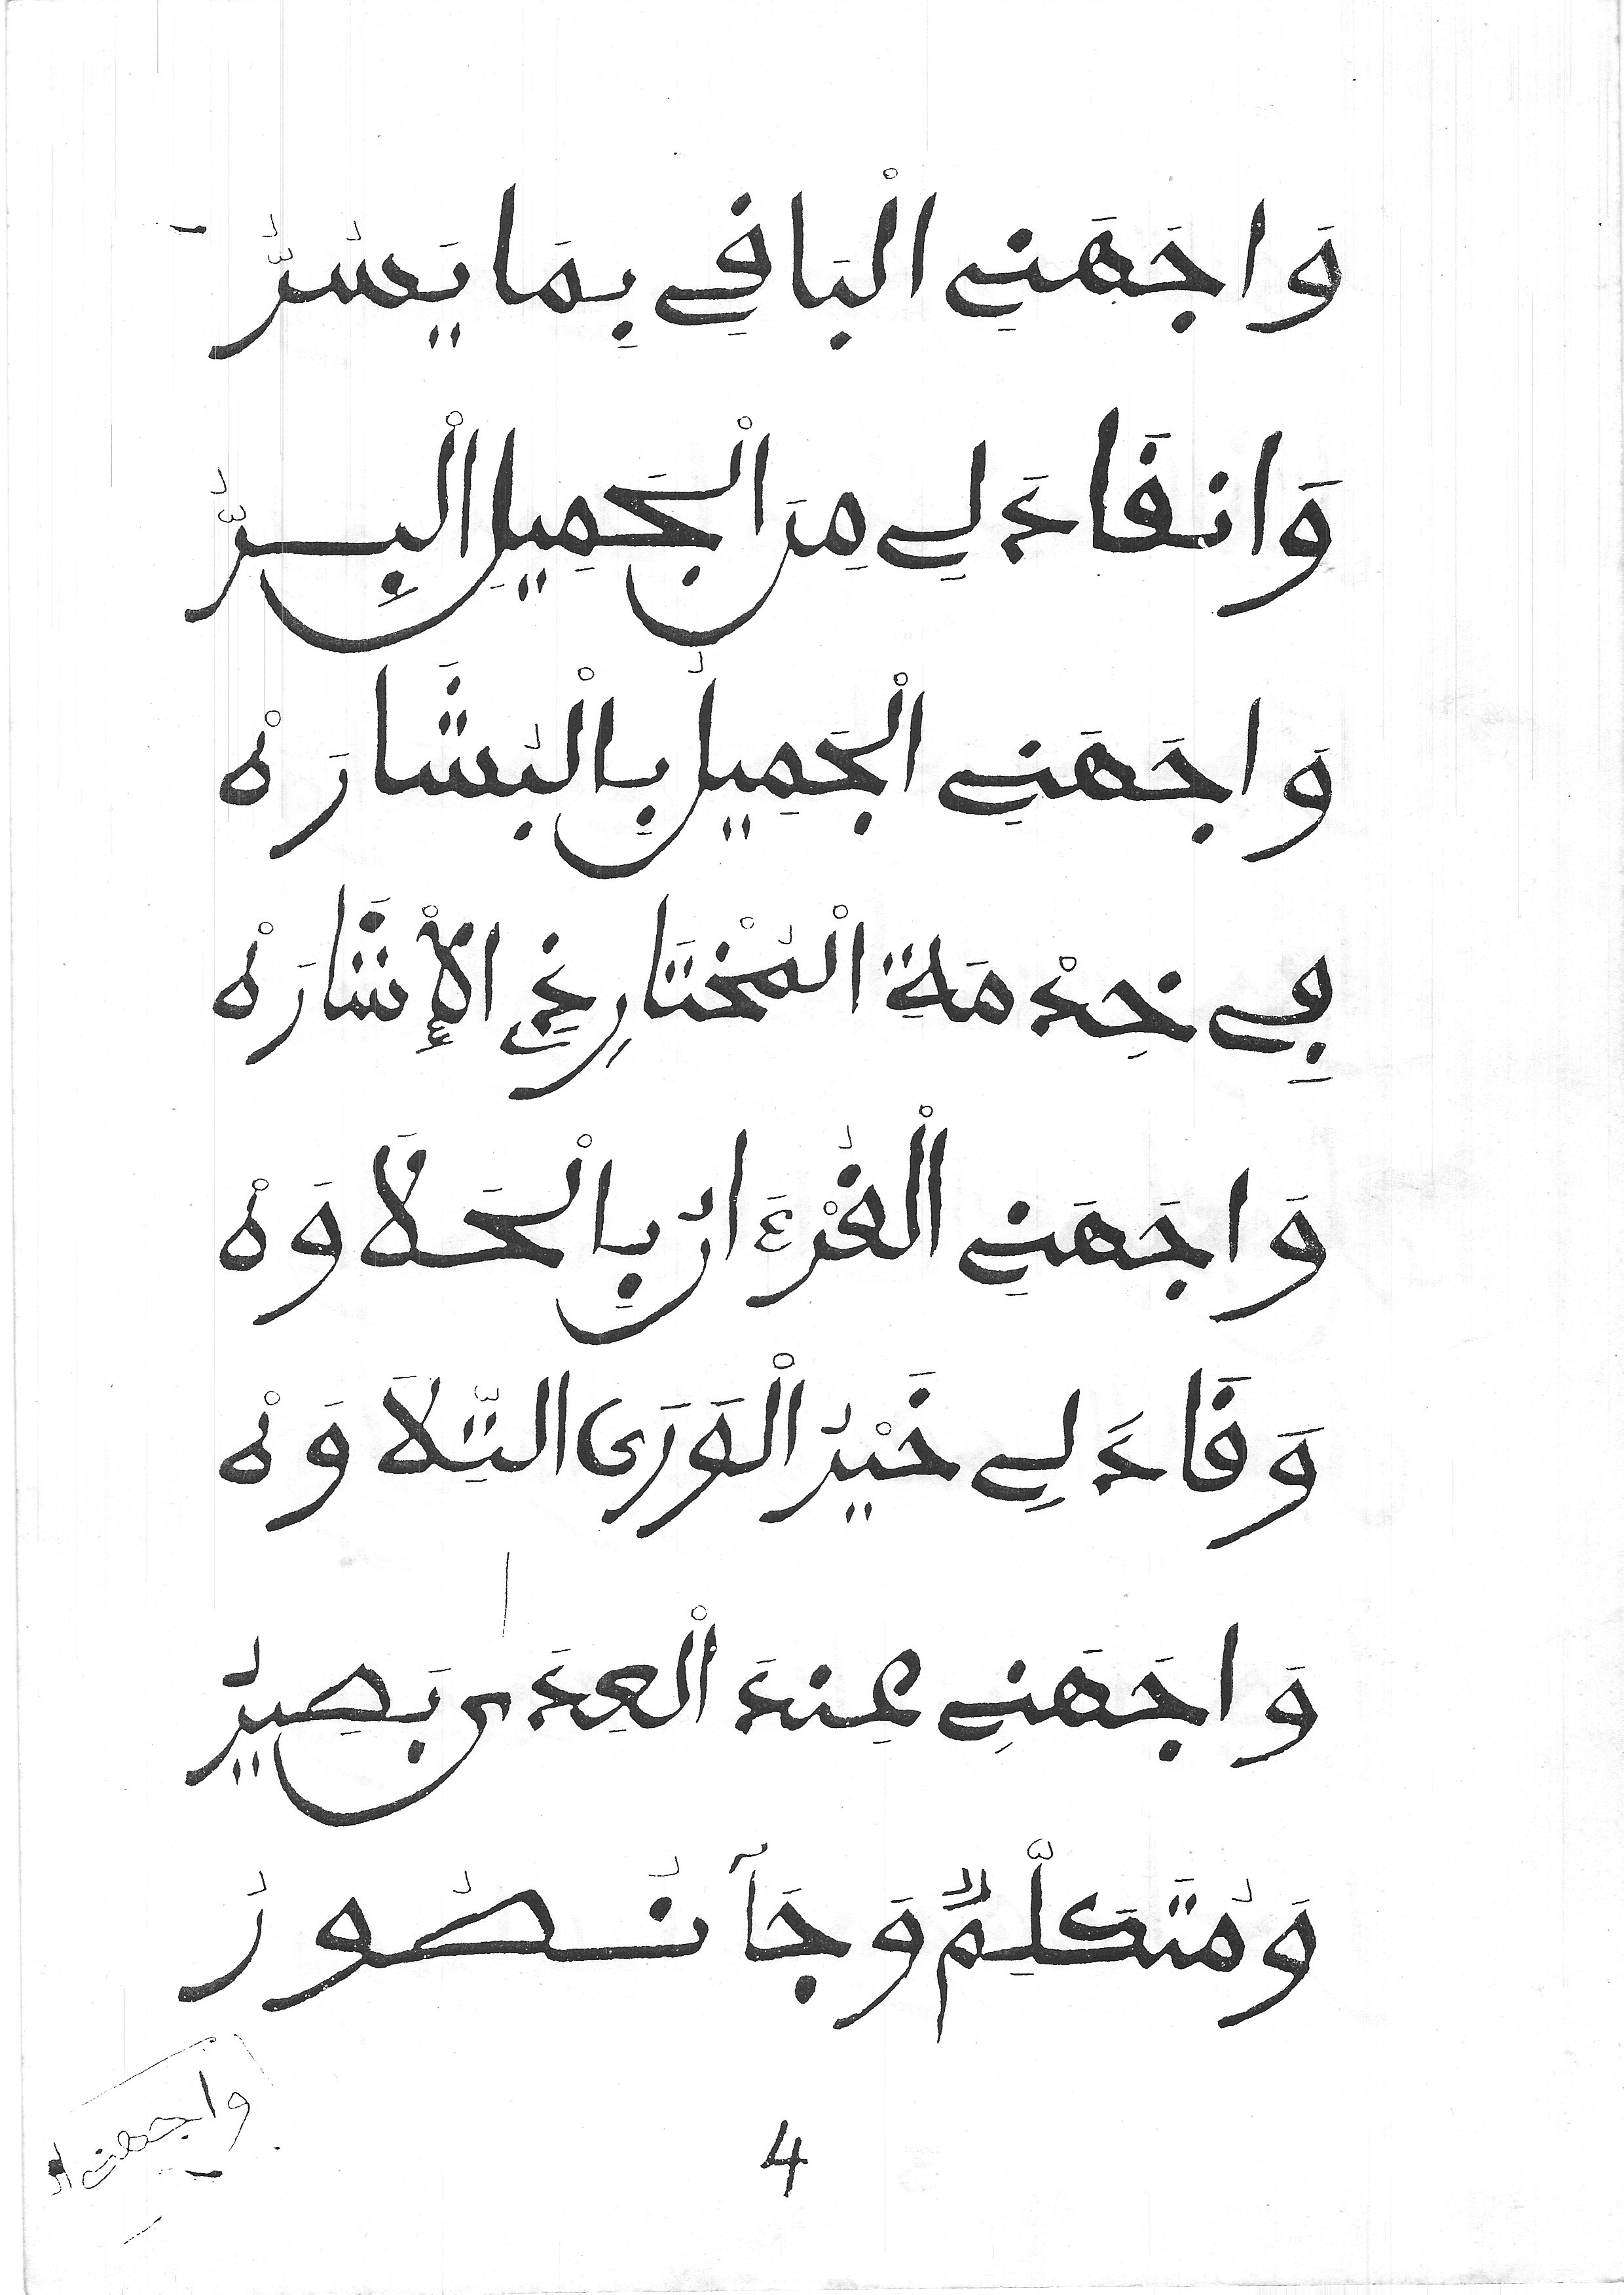 وَاجَهَنِي الْبَاقِي بِمَا يَسُرُّ
وَانقَادَ لِي مِنَ الْجَمِيلِ الْبِرُّ
وَاجَهَنِي الْجَمِيلُ بِالْبُشَارَهْ
فِي خِدْمَةِ الْمُخْتَارِ ذِي الْإِشَارَهْ
وَاجَهَنِي الْقُرْءَانُ بِالْحَلَاوَهْ
وَقَادَ لِي خَيْرُ الْوَرَى التِّلَاوَهْ
وَاجَهَنِي عِندَ الْعِدَى بَصِيرُ
وَمُتَكَلِّمٌ وَجَآ نُصُورُ
4
واجهنى ا